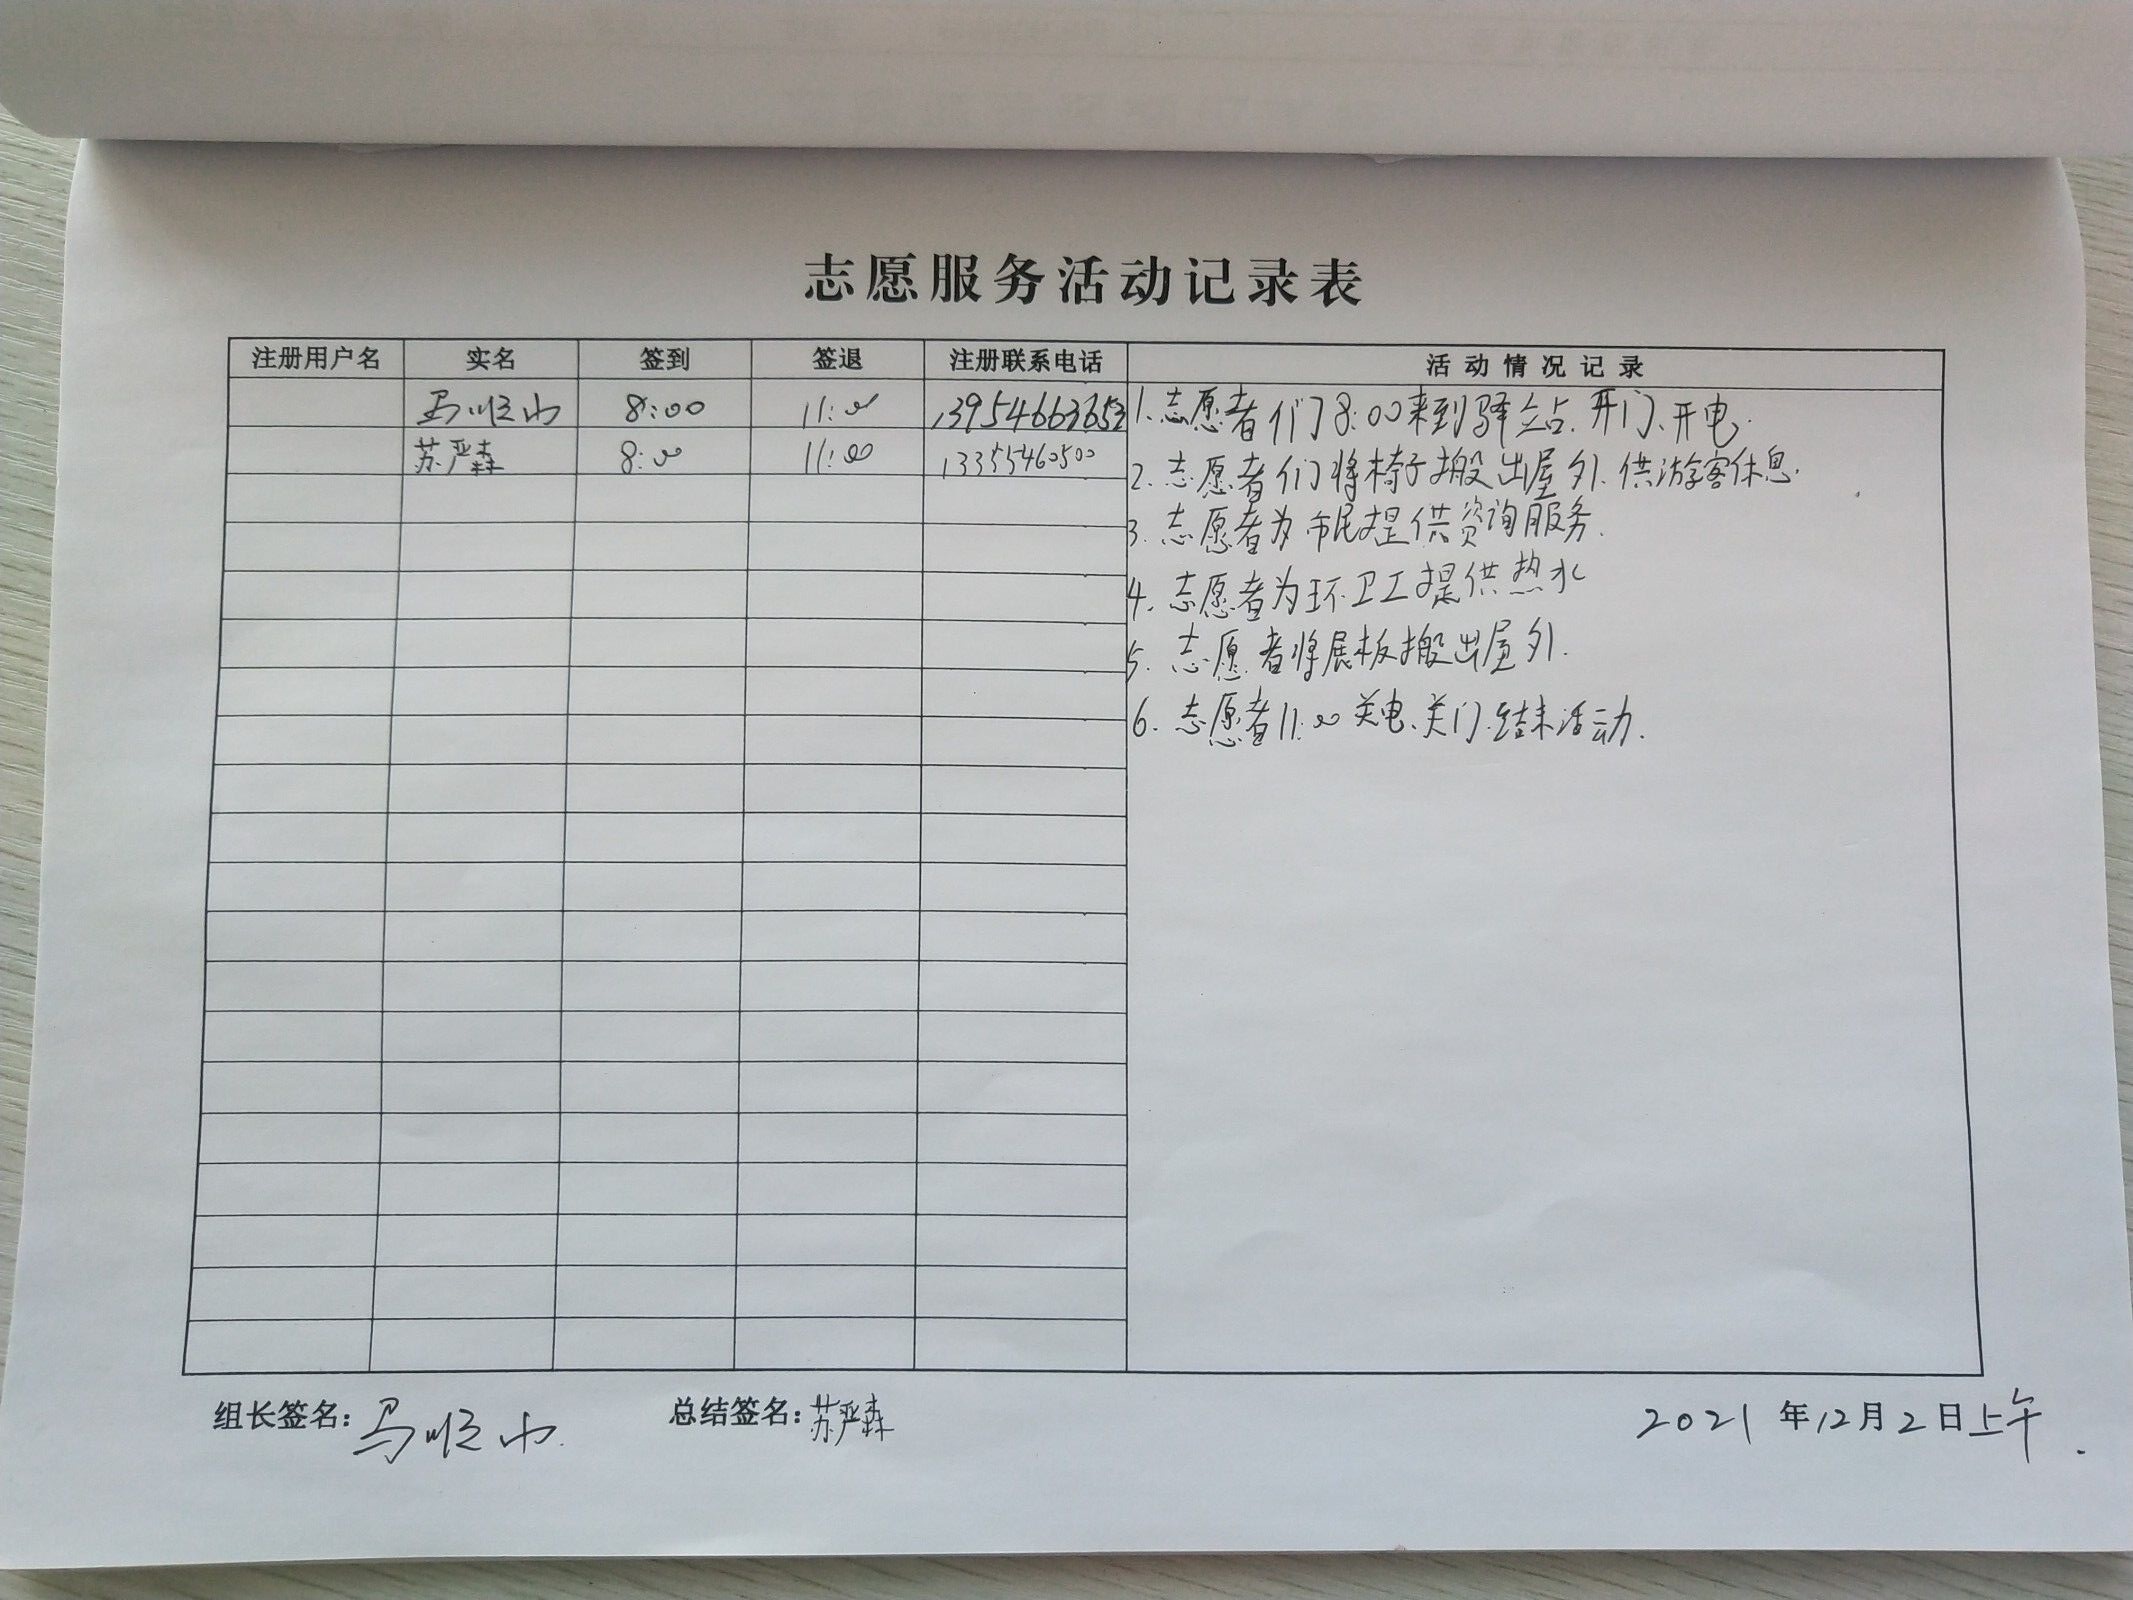 志愿服务活动记录表
注册用户名 实名 签到 签退 注册联系电话 活动情况记录
马顺山 8:00 11:00 13954663653 1.志愿者们8:00来到驿站.开门、开电.
苏严森 8:00 11:00 13355460500
2.志愿者们将椅子搬出屋外.供游客休息.
3.志愿者为市民提供资询服务.
4.志愿者为环卫工提供热水
5.志愿者将展板搬出屋外.
6.志愿者11:00关电、关门.结束活动.
组长签名:马顺山 总结签名:苏严森 2021年12月2日上午